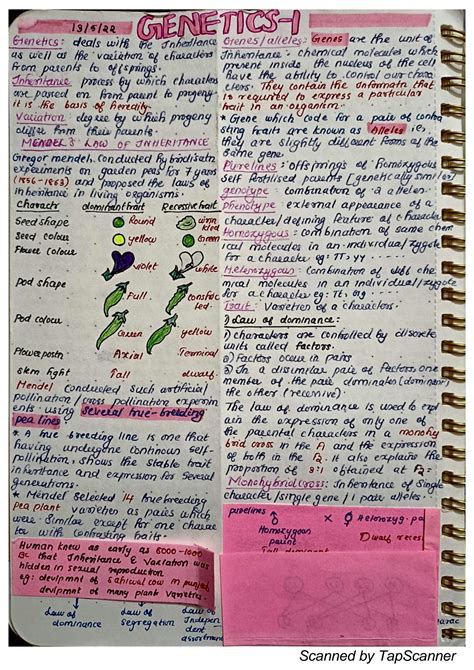 13/5/22
GENETICS-1
Genetics: deals with the Inheritance
as well as the variation of characters
from parents to offsprings.
Inheritance process by which characters
are passed on from parent to progeny
it is the basis of heredity.
Variation: degree by which progeny
differ from their parents.
MENDEL'S LAW OF INHERITANCE
Gregor mendel. Conducted hybridisatn
experiments on garden peas for 7 years
(1856-1863) and proposed the laws of
inheritance in living organisms.
Charactr dominant trait Recessive trait
Seed shape Round wrinkled
Seed colour yellow Green
Flower colour violet white
Pod shape Full constricted
Pod colour Green yellow
Flower postn Axial Terminal
stem hight Tall dwarf
Mendel conducted such artificial
pollination / cross pollination experim
ents using several true-breeding
pea lines
* A true breeding line is one that
having undergone continous self-
pollination, shows the stable trait
inheritance and expression for several
generations.
* Mendel Selected 14 true breeding
pea plant varieties as pairs which
were similar except for one charac
ter with contrasting traits
Human knew as early as 8000-1000
BC that Inheritance & Variation was
hidden in sexual reproduction
eg: devlpmnt of Sahiwal cow in punjab
devlpmnt of many plant varieties.
Law of dominance
Law of Segregation
Law of Independent assortment
Genes/alleles: Genes are the unit of
Inheritance. chemical molecules which
present inside the nucleus of the cell
have the ability to control our chara
cters. They contain the informatn that
is required to express a particular
trait in an organism.
* Gene which code for a pair of contra
sting traits are known as Alleles ie,
they are slightly different forms of the
same gene.
Purelines: Offsprings of homozygous
self fertilised parents (genetically similar)
genotype: combination of 2 alleles.
phenotype: external appearance of a
character/defining feature of character
Homozygous: combination of same chem
ical molecules in an individual/zygote
for a character eg: TT, yy
Heterozygous: Combination of
molecules in an individual/zygote
for a character eg: Tt
Trait: Varieties of a character.
1) Law of dominance:
1) characters are controlled by discrete
units called factors.
2) Factors occur in pairs
3) In a dissimilar pair of factors one
member of the pair dominates (dominant)
the other (recessive).
The law of dominance is used to expl
ain the expression of only one of
the parental characters in a monohy
brid cross in the F1 and the expression
of both in the F2. It also explains the
proportion of 3:1 obtained at F2.
Monohybrid cross: Inheritance of Single
character/single gene/1 pair alleles.
purelines
♀ × ♂
Homozygous
paant
Tall dominant
Dwarf recess
Scanned by TapScanner